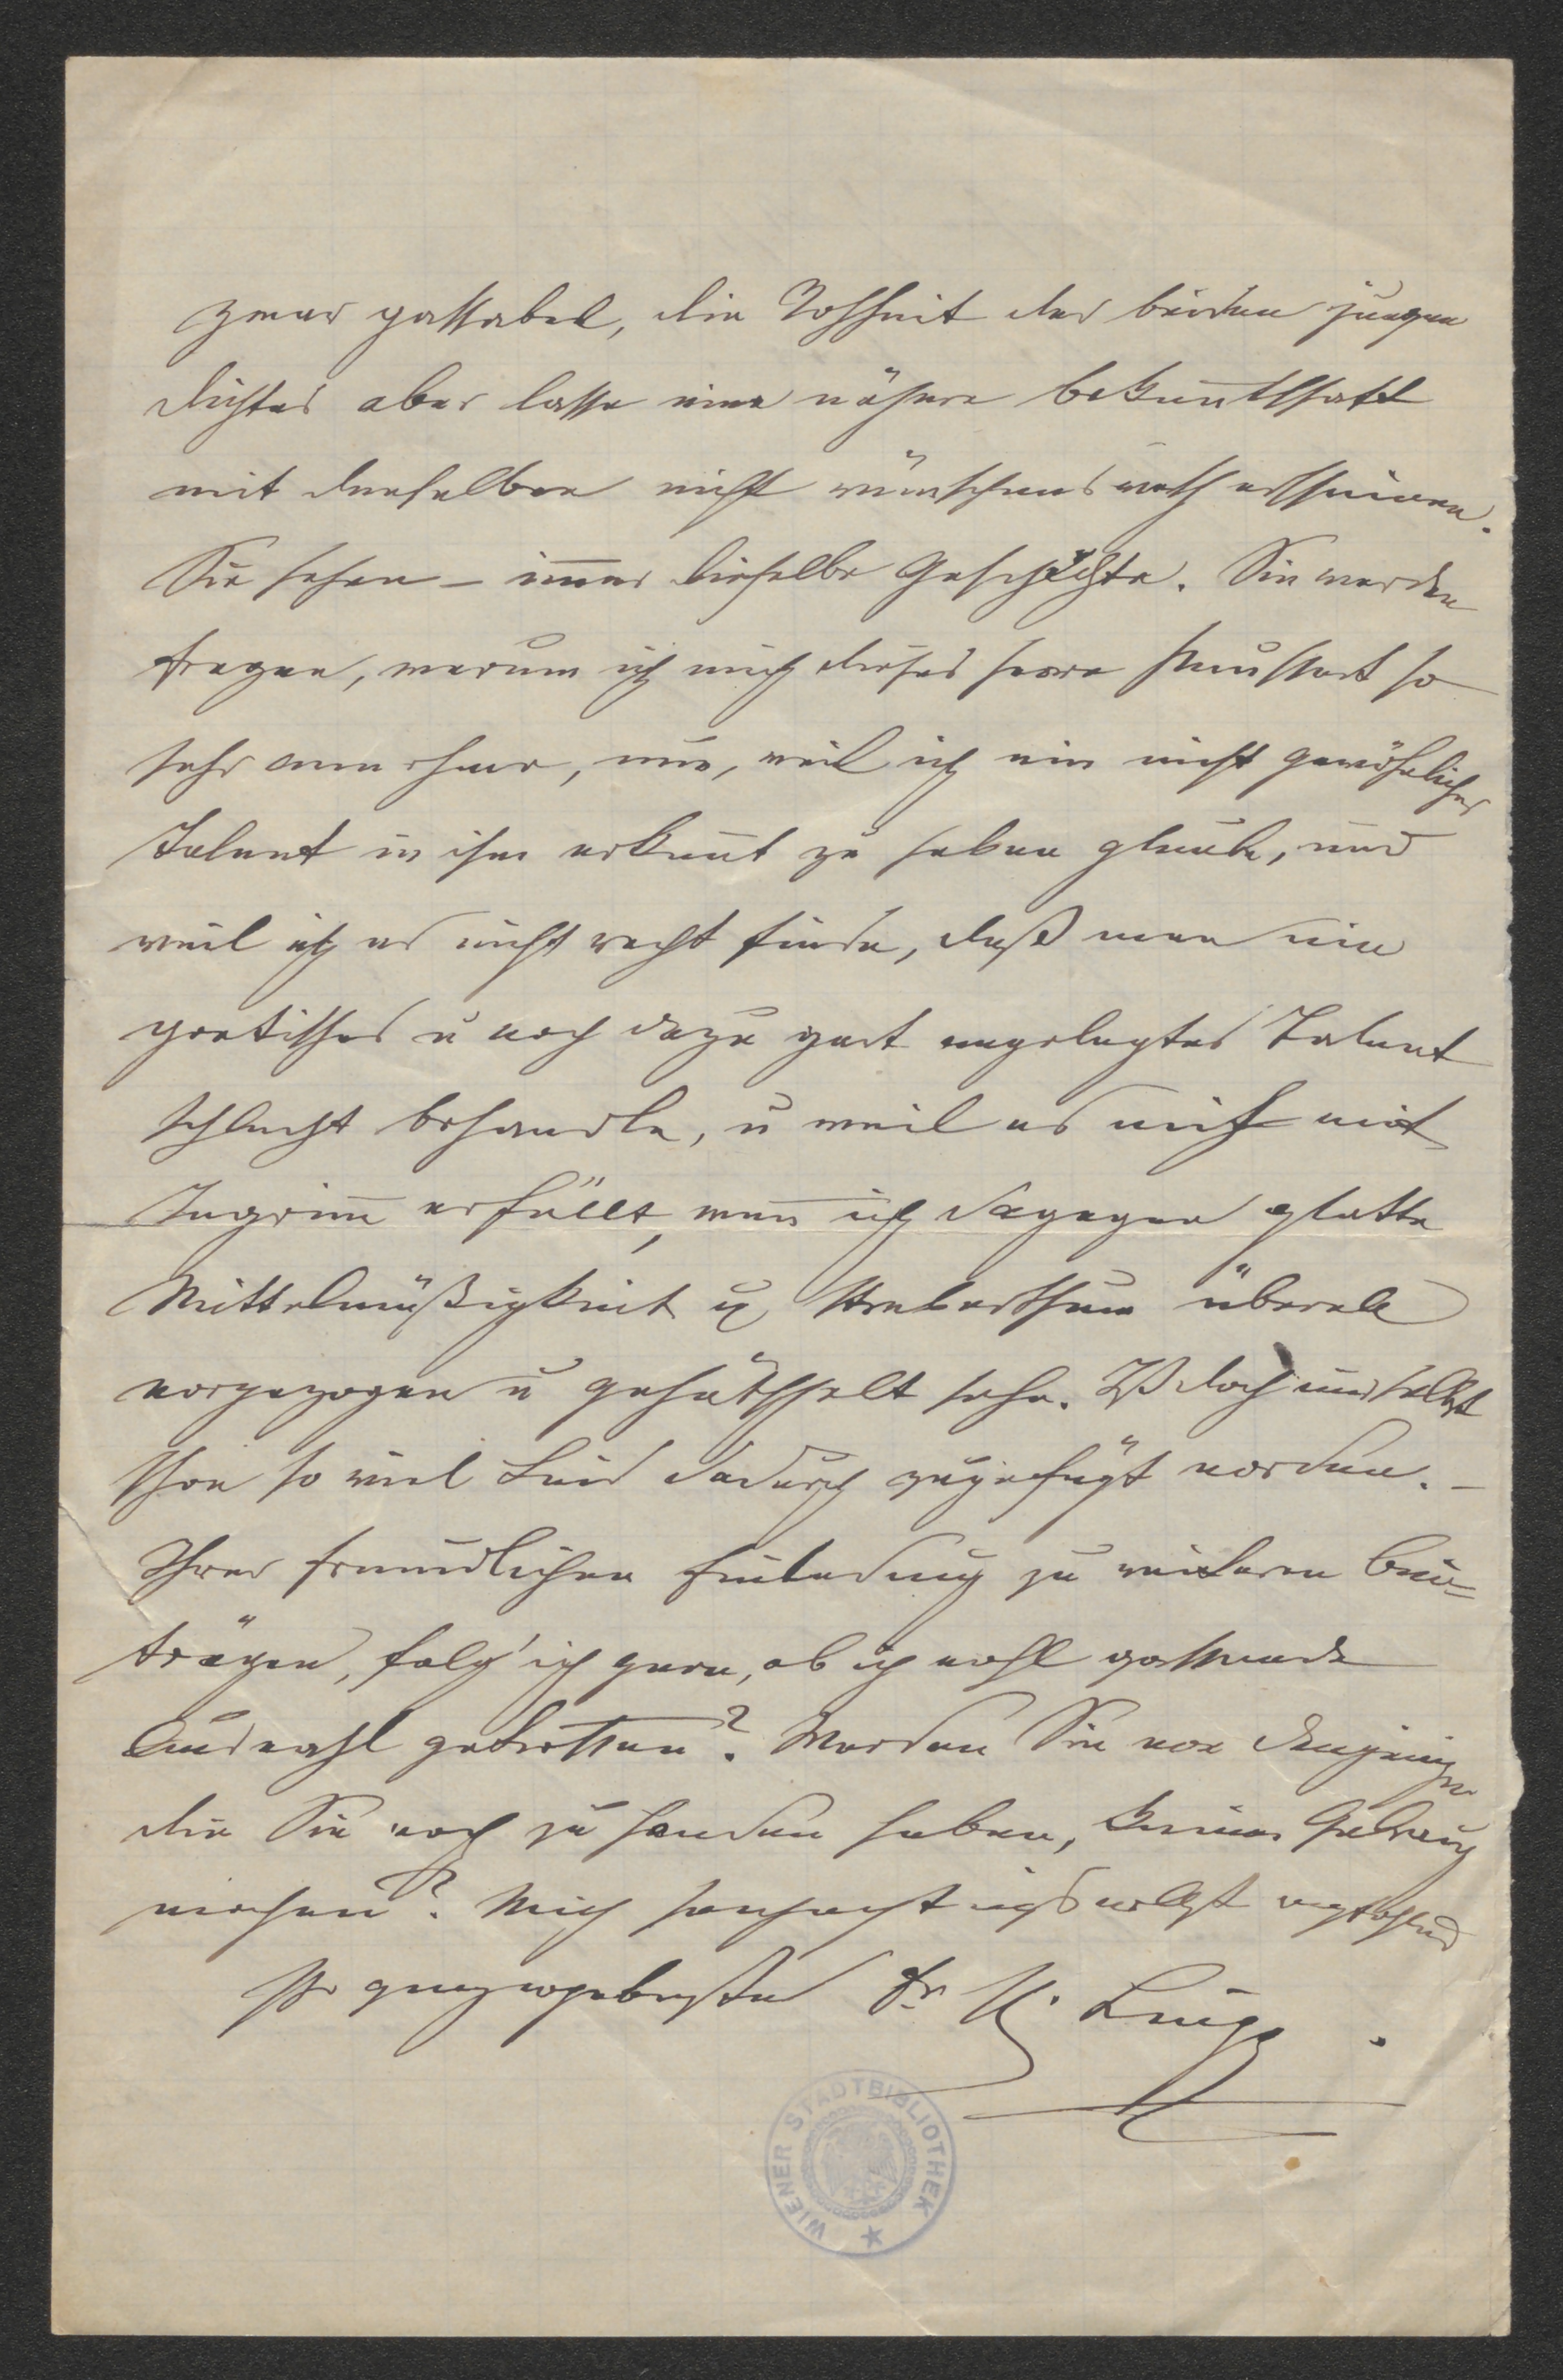 zwar passabel, die Rohheit der beiden jungen
Dichter aber lasse eine nähere Bekanntschaft
mit denselben nicht wünschenswerth erscheinen.
Sie sehen – immer dieselbe Geschichte. Sie werden
fragen, warum ich mich dieses Herrn so
sehr annehme, nun, weil ich ein nicht gewöhnliches
Talent in ihm erkannt zu haben glaube, und
weil ich es nicht recht finde, daß man ein
poetisches u noch dazu zart angelegtes Talent
schlecht behandle, u weil es mich mit
Ingrimm erfüllt, wenn ich dagegen glatte
Mittelmäßigkeit u Streberthum überall
vorgezogen u gehätschelt sehe. Ist doch uns selbst
schon so viel Leid dadurch zugefügt worden. –
Ihrer freundlichen Einladung zu weiteren Bei=
trägen, folg' ich gern, ob ich wohl passende
Auswahl getroffen? Werden Sie von denjenigen
die Sie noch zu Handen haben, keinen Gebrauch
machen? Mich hochachtungsvollst empfehlend
Ihr ganz ergebenster Dr H. Lingg.
WIENER STADTBIBLIOTHEK